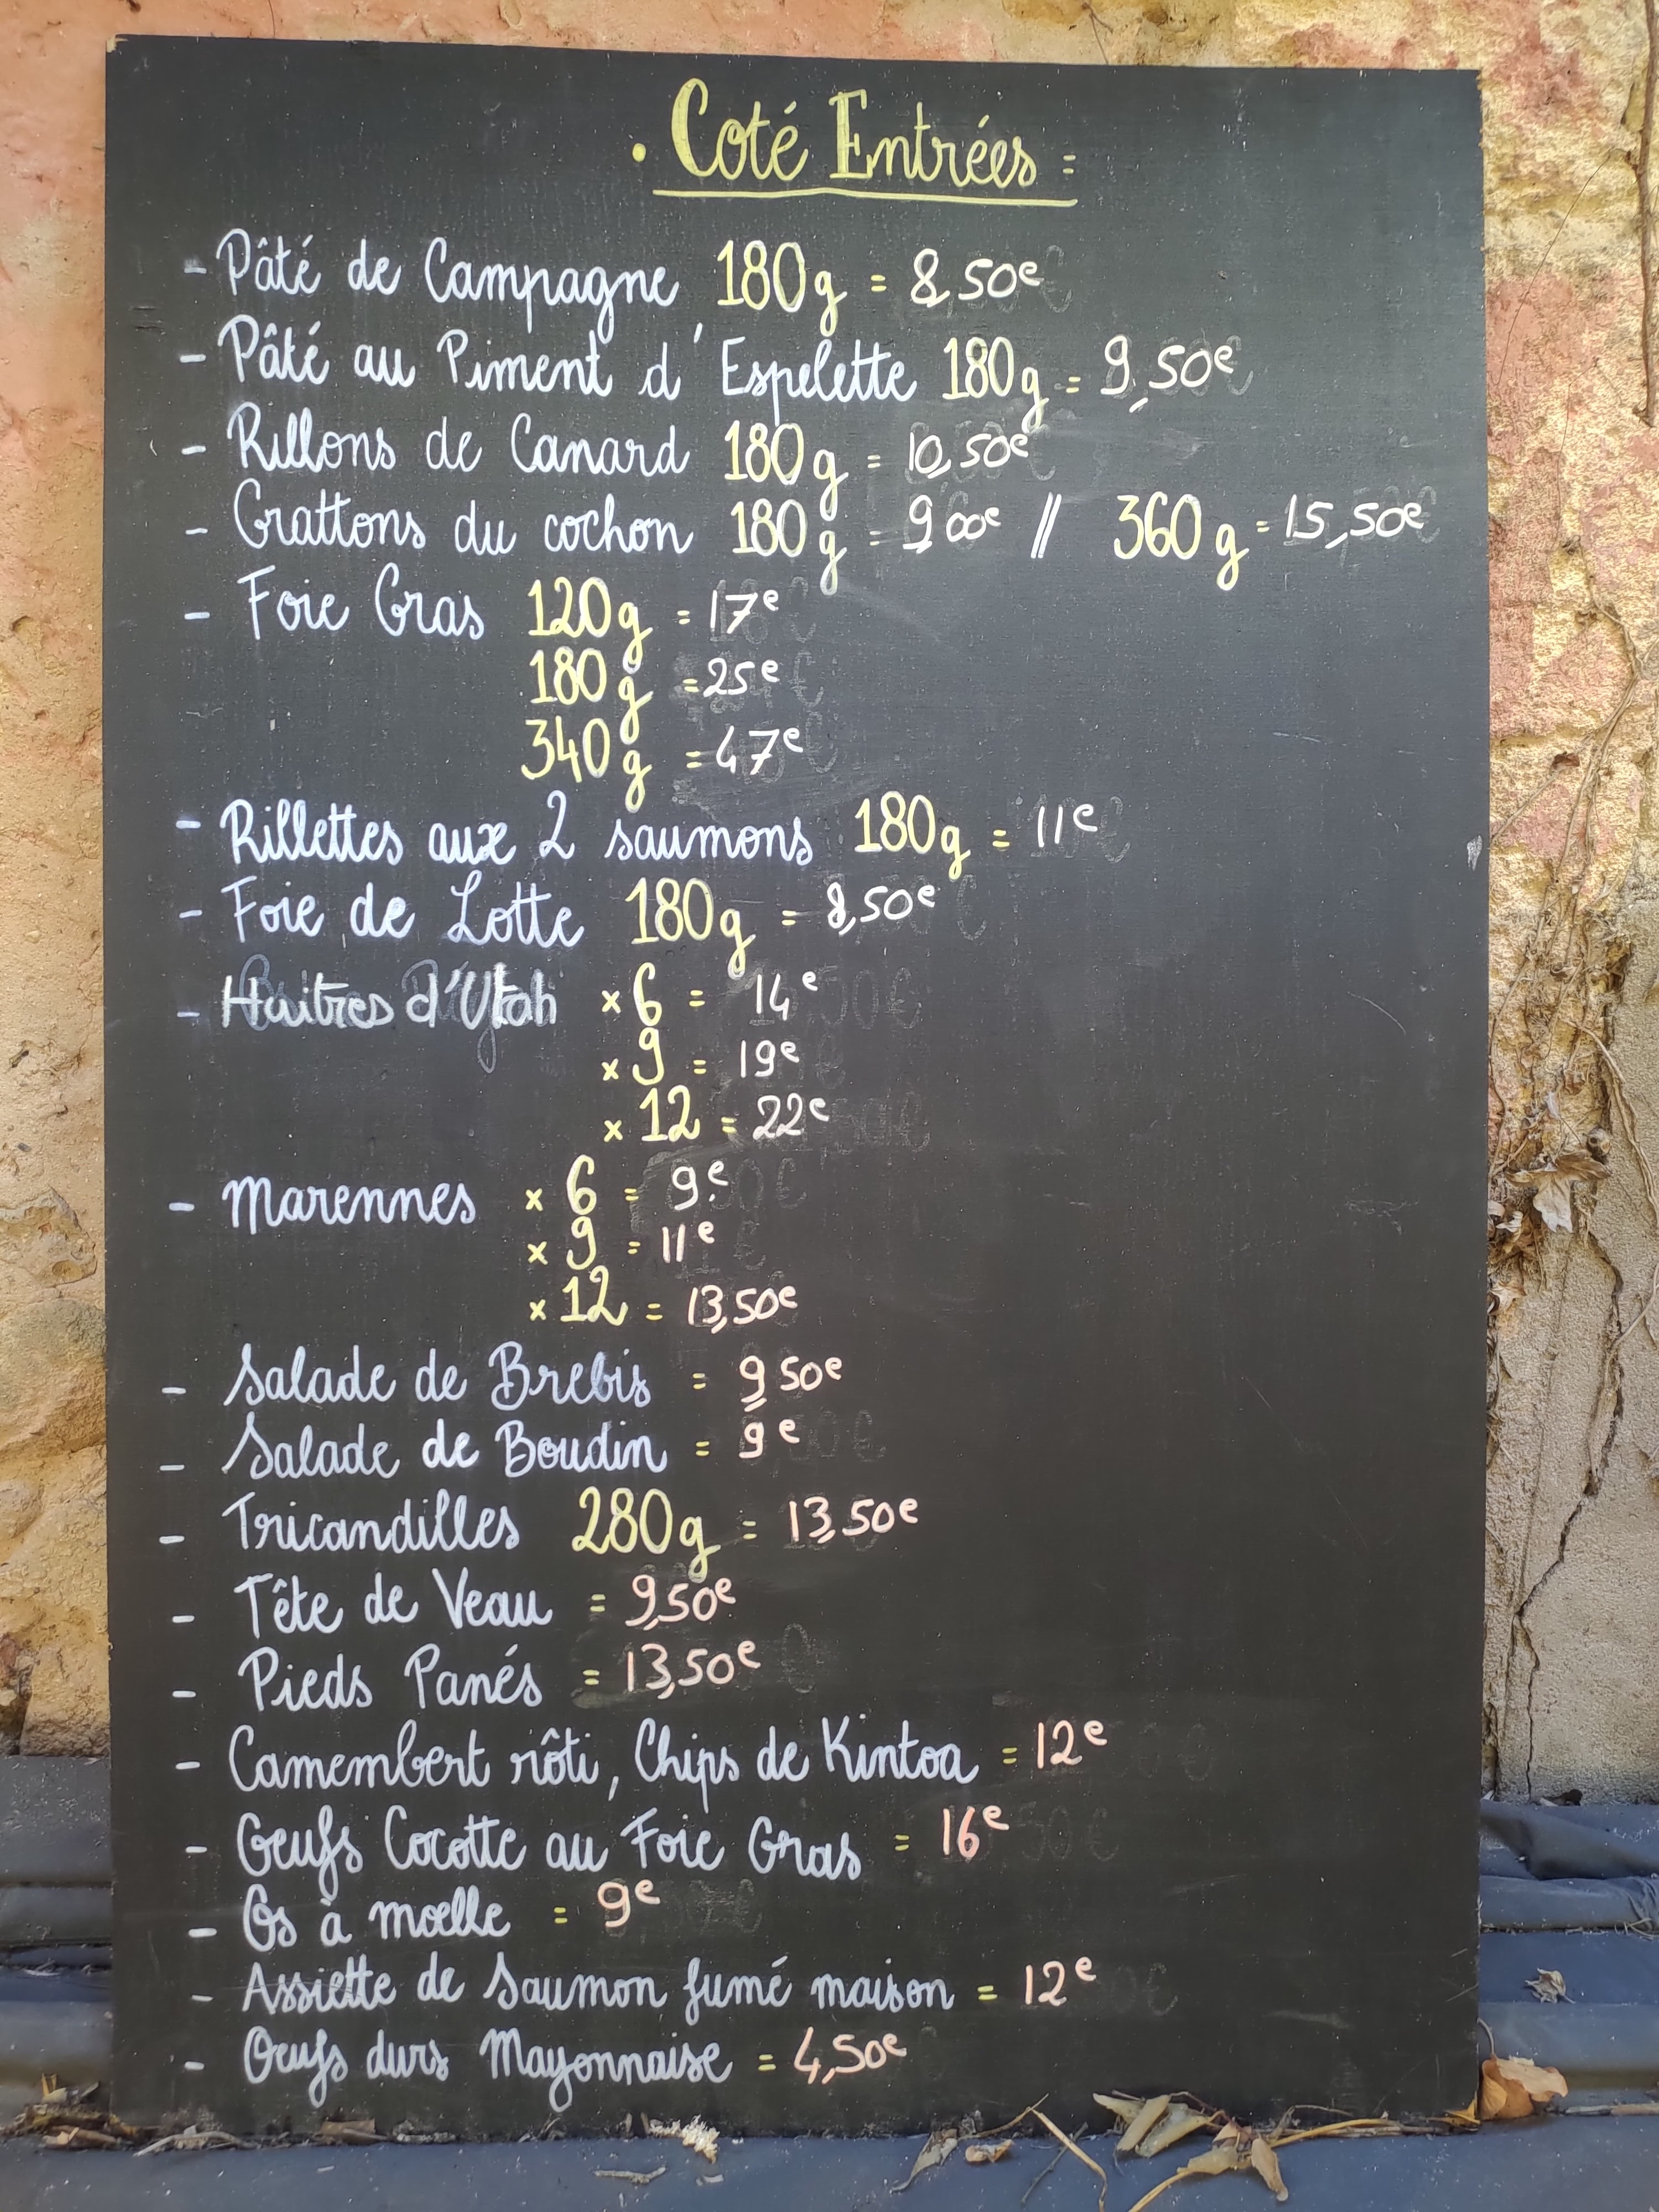 . Coté Entrées :
- Pâté de Campagne 180g = 8,50e
- Pâté au Piment d'Espelette 180g = 9,50e
- Rillons de Canard 180g = 10,50e
- Grattons du cochon 180g = 9,00e // 360g = 15,50e
- Foie Gras 120g = 17e
180g = 25e
340g = 47e
- Rillettes aux 2 saumons 180g = 11e
- Foie de Lotte 180g = 8,50e
- Huitres d'Utah x 6 = 14e
x 9 = 19e
x 12 = 22e
- Marennes x 6 = 9e
x 9 = 11e
x 12 = 13,50e
- Salade de Brebis = 9,50e
- Salade de Boudin = 9e
- Tricandilles 280g = 13,50e
- Tête de Veau = 9,50e
- Pieds Panés = 13,50e
- Camembert rôti, Chips de Kintoa = 12e
- Oeufs Cocotte au Foie Gras = 16e
- Os à moelle = 9e
- Assiette de Saumon fumé maison = 12e
- Oeufs durs Mayonnaise = 4,50e